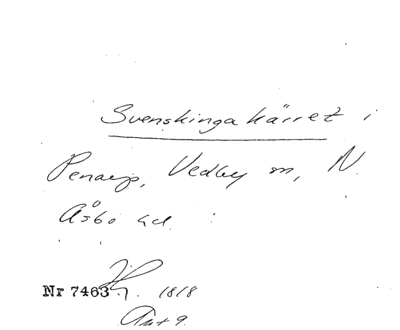 Svenskinga kärret i
Penarp, Vedby sn, N.
Åsbo hd.
Nr 7463 1818
Akt 9